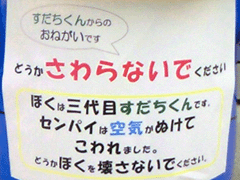 すだちくんからの
おねがいです
どうか さわらないで ください
ぼくは三代目すだちくんです。
センパイは空気がぬけて
こわれました。
どうかぼくを壊さないでください。